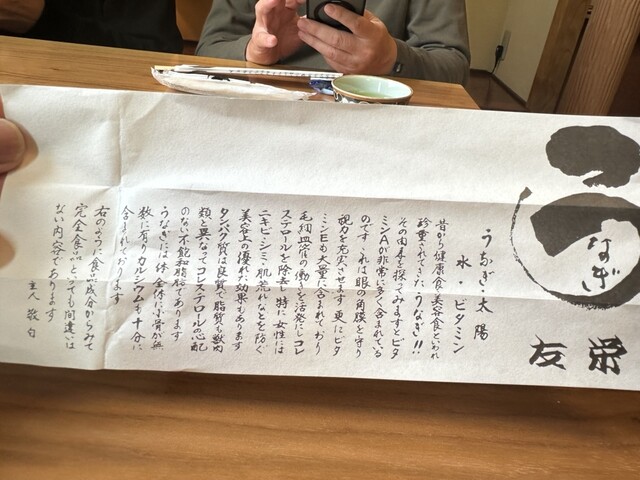 うなぎ
栄
友
うなぎ・太陽
水・ビタミン
昔から健康食、美容食といわれ
珍重されてきた、うなぎ!!
その由来を探ってみますとビタ
ミンAが非常に多く含まれている
のです。これは眼の角膜を守り
視力を充実させます。更にビタ
ミンEも大量に含まれており
毛細血管の働きを活発にし、コレ
ステロールを除去し特に女性には
ニキビ・シミ・肌荒れなどを防ぐ
美容上の優れた効果もあります
タンパク質は良質で脂質も獣肉
類と異なってコレステロールの心配
のない不飽和脂肪であります
うなぎには体全体に小骨が無
数に有りカルシウムも十分に
含まれております
右のように食品成分からみて
完全食品といっても間違いは
ない内容であります
主人敬白